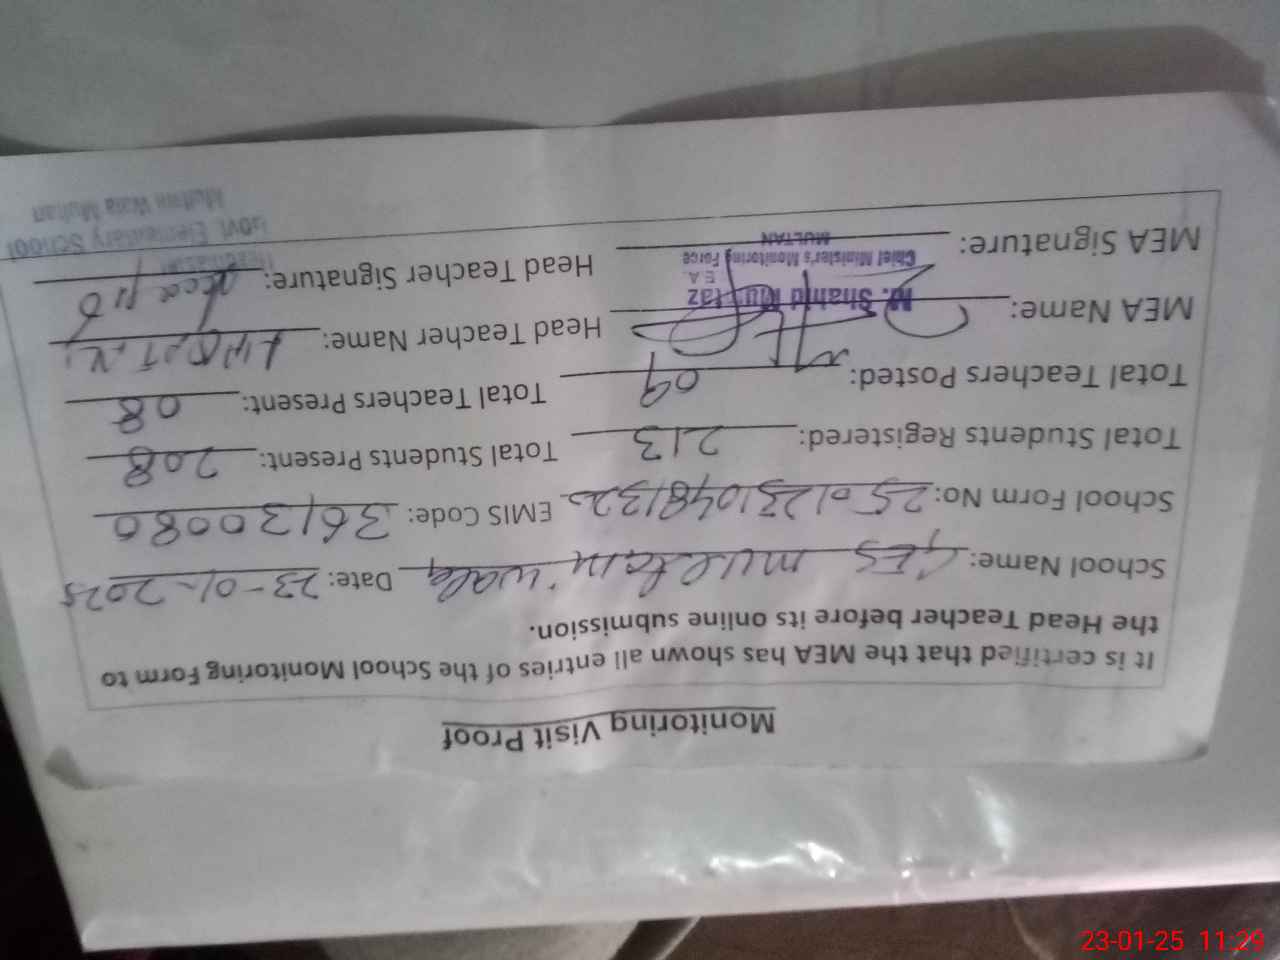 Monitoring Visit Proof
It is certified that the MEA has shown all entries of the School Monitoring Form to
the Head Teacher before its online submission.
School Name: GES multani wala Date: 23-01-2025
School Form No: EMIS Code: 36130080
Total Students Registered: 213 Total Students Present: 208
Total Teachers Posted: 09 Total Teachers Present: 08
MEA Name: Head Teacher Name:
MEA Signature: Head Teacher Signature:
M. Shahid Mumtaz
Chief Minister's Monitoring Force
MULTAN
Govt. Elementary School
Multani Wala Multan
23-01-25 11:29